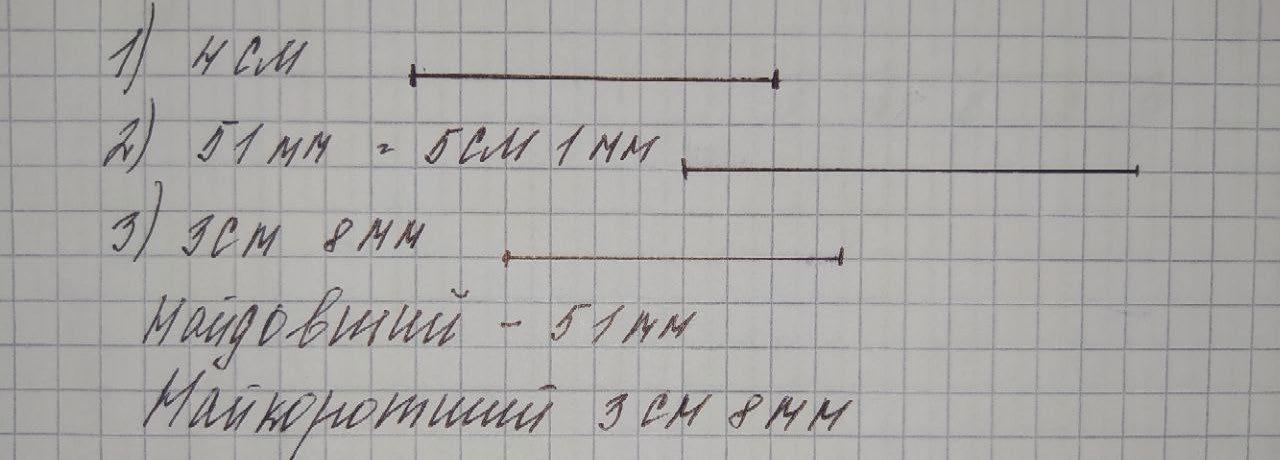 1) 4 см
2) 51 мм = 5 см 1 мм
3) 3 см 8 мм
Найдовший - 51 мм
Найкоротший 3 см 8 мм